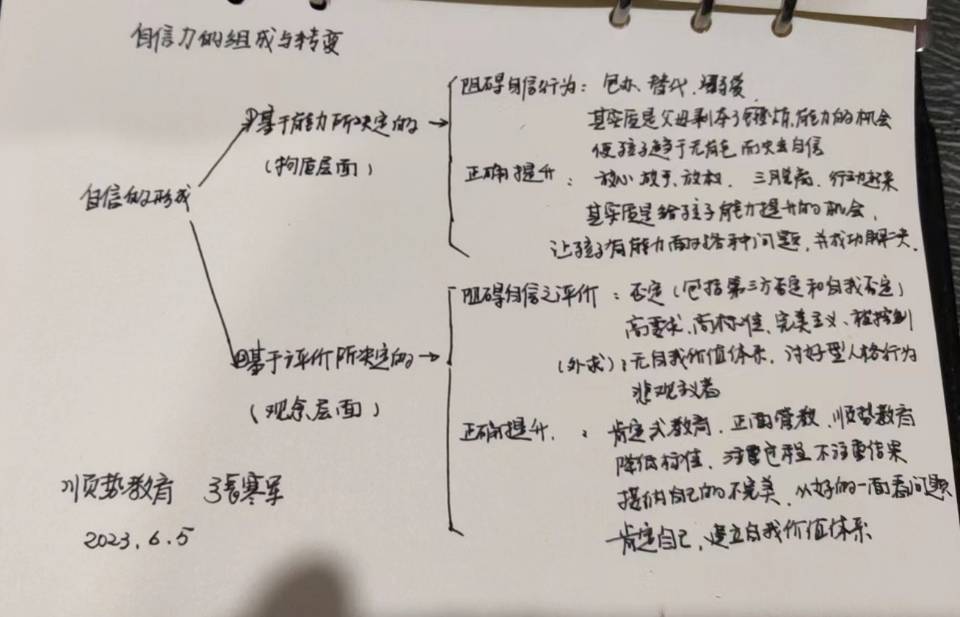 自信力的组成与转变
自信的形成
①基于能力所决定的
(物质层面)
阻碍自信行为：包办、替代、溺爱
其实质是父母剥夺了孩子 能力的机会
使孩子趋于无能 而失去自信
正确提升：放心 放手、放权、三脱离、行动起来
其实质是给孩子能力提升的机会，
让孩子有能力面对各种问题，并成功解决。
②基于评价所决定的
(观念层面)
阻碍自信之评价：否定（包括第三方否定和自我否定）
高要求、高标准、完美主义、被控制
(外求)：无自我价值体系、讨好型人格行为
悲观主义者
正确提升：肯定式教育、正面管教、顺势教育
降低标准、注重过程不注重结果
接纳自己的不完美、从好的一面看问题
肯定自己、建立自我价值体系
顺势教育 张寒军
2023.6.5